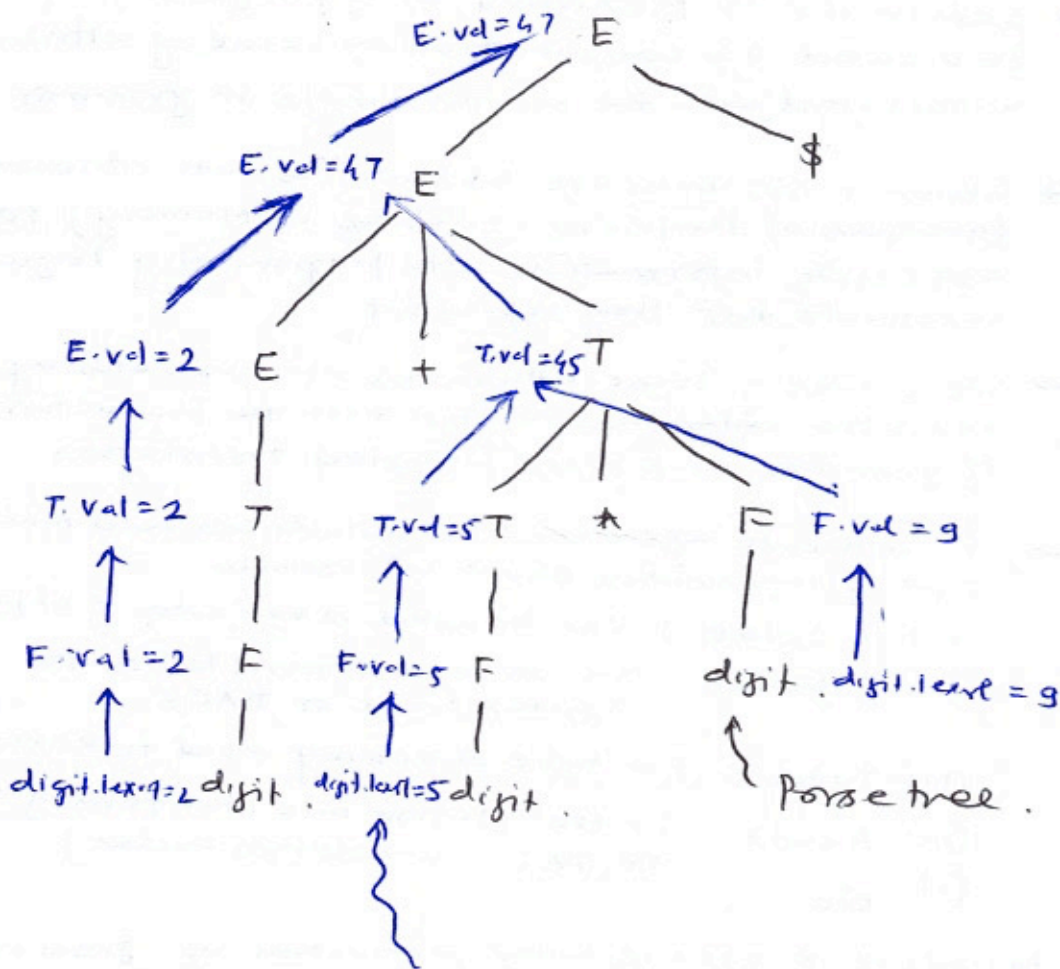 E.val=47 E
E.val=47 E $
E.val=2 E + T.val=45 T
T.val=2 T T.val=5 T * F F.val=9
F.val=2 F F.val=5 F digit. digit.lexval=9
digit.lexval=2 digit. digit.lexval=5 digit. Parse tree.